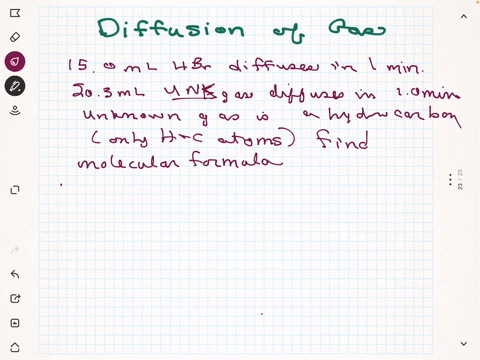 Diffusion of Gas
15.0 mL HBr diffuses in 1 min.
20.3 mL UNK gas diffuses in 1.0 min
unknown gas is a hydrocarbon
(only H + C atoms) find
molecular formula
23 / 23